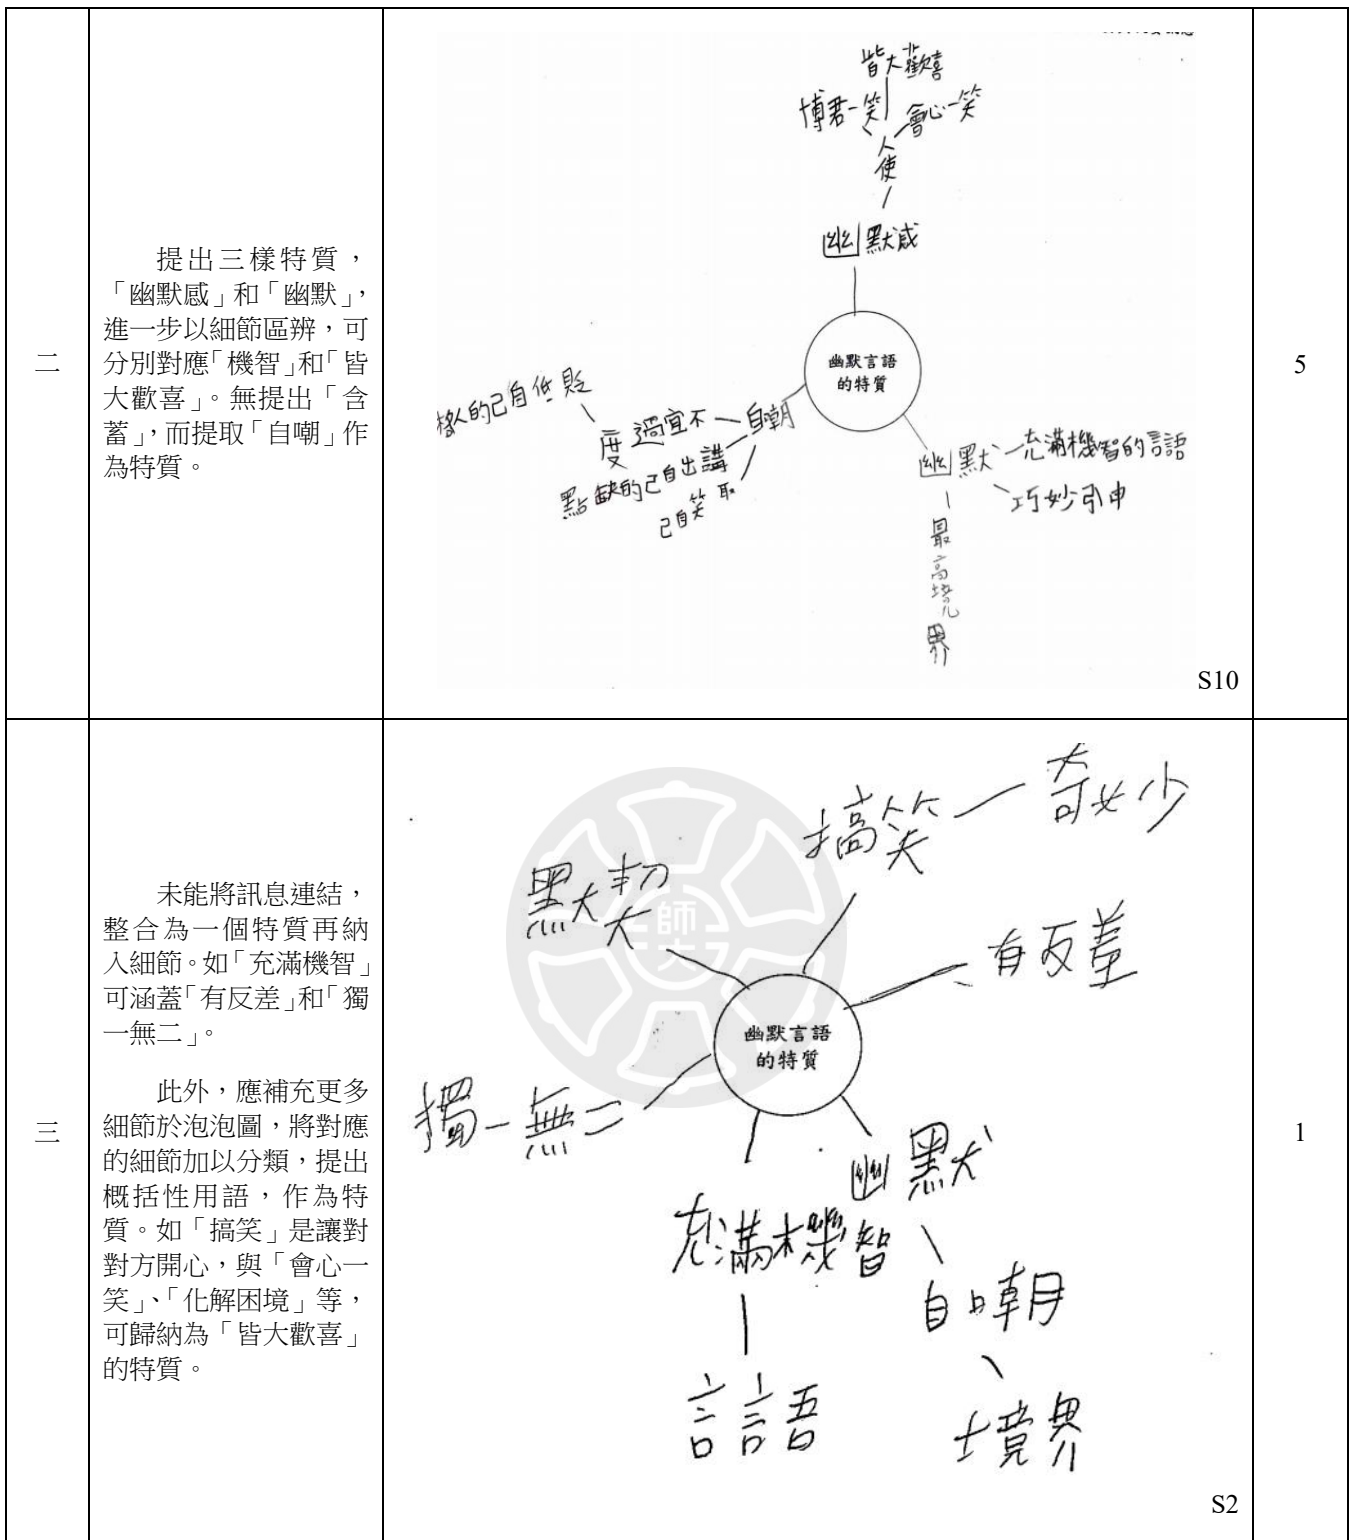 二
提出三樣特質，
「幽默感」和「幽默」，
進一步以細節區辨，可
分別對應「機智」和「皆
大歡喜」。無提出「含
蓄」，而提取「自嘲」作
為特質。
皆大歡喜
博君一笑
會心一笑
人使
幽默感
幽默言語
的特質
自嘲
不宜過度
貶低自己的人
講出自己的缺點
取笑自己
幽默
充滿機智的言語
巧妙引申
最高境界
S10
5
三
未能將訊息連結，
整合為一個特質再納
入細節。如「充滿機智」
可涵蓋「有反差」和「獨
一無二」。
此外，應補充更多
細節於泡泡圖，將對應
的細節加以分類，提出
概括性用語，作為特
質。如「搞笑」是讓對
對方開心，與「會心一
笑」、「化解困境」等，
可歸納為「皆大歡喜」
的特質。
搞笑
奇妙
默契
有反差
師大
幽默言語
的特質
獨一無二
幽默
充滿機智
自嘲
言語
境界
S2
1